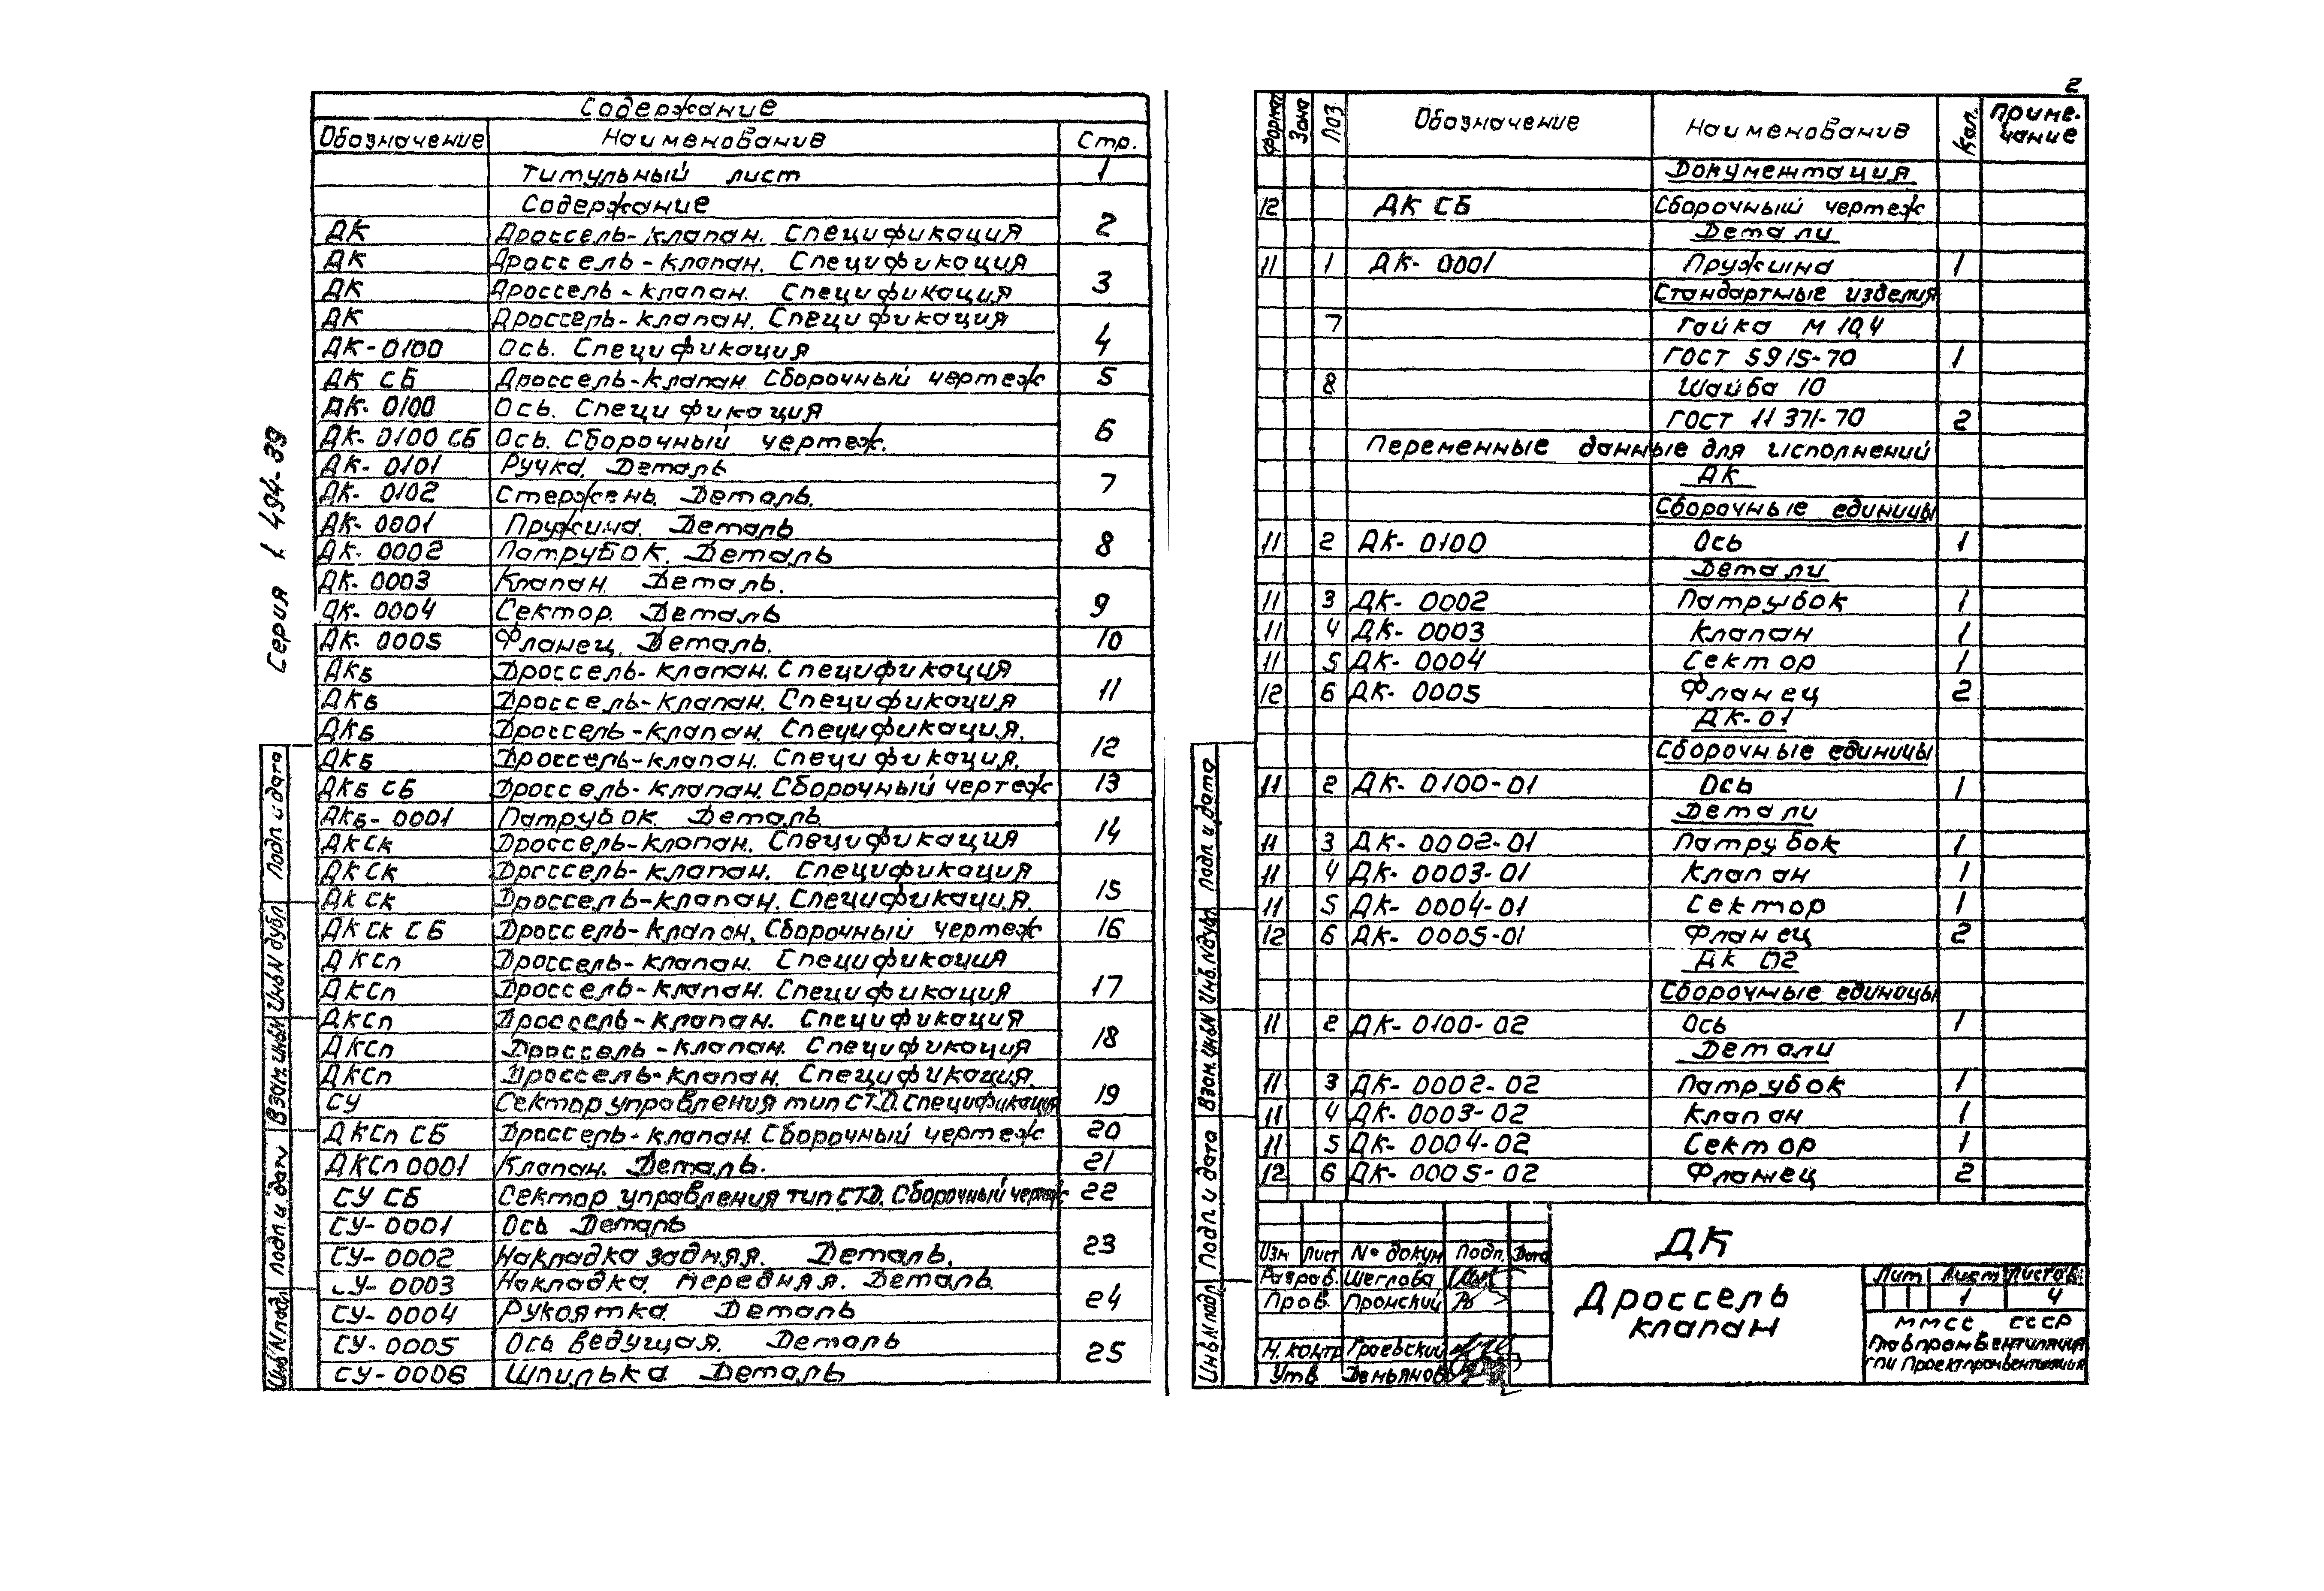 Содержание
Обозначение Наименование Стр.
Титульный лист 1
Содержание 2
ДК Дроссель-клапан. Спецификация
ДК Дроссель-клапан. Спецификация 3
ДК Дроссель-клапан. Спецификация
ДК Дроссель-клапан. Спецификация 4
ДК-0100 Ось. Спецификация
ДК СБ Дроссель-клапан. Сборочный чертеж 5
ДК-0100 Ось. Спецификация 6
ДК-0100 СБ Ось. Сборочный чертеж.
ДК-0101 Ручка. Деталь 7
ДК-0102 Стержень. Деталь.
ДК-0001 Пружина. Деталь 8
ДК-0002 Патрубок. Деталь
ДК-0003 Клапан. Деталь. 9
ДК-0004 Сектор. Деталь
ДК-0005 Фланец. Деталь. 10
ДКБ Дроссель-клапан. Спецификация 11
ДКБ Дроссель-клапан. Спецификация
ДКБ Дроссель-клапан. Спецификация. 12
ДКБ Дроссель-клапан. Спецификация.
ДКБ СБ Дроссель-клапан. Сборочный чертеж 13
ДКБ-0001 Патрубок. Деталь 14
ДКСк Дроссель-клапан. Спецификация
ДКСк Дроссель-клапан. Спецификация 15
ДКСк Дроссель-клапан. Спецификация.
ДКСк СБ Дроссель-клапан. Сборочный чертеж 16
ДКСп Дроссель-клапан. Спецификация 17
ДКСп Дроссель-клапан. Спецификация
ДКСп Дроссель-клапан. Спецификация 18
ДКСп Дроссель-клапан. Спецификация
ДКСп Дроссель-клапан. Спецификация. 19
СУ Сектор управления тип СТД. Спецификация
ДКСп СБ Дроссель-клапан. Сборочный чертеж 20
ДКСп 0001 Клапан. Деталь. 21
СУ СБ Сектор управления тип СТД. Сборочный чертеж 22
СУ-0001 Ось Деталь 23
СУ-0002 Накладка задняя. Деталь.
СУ-0003 Накладка передняя. Деталь 24
СУ-0004 Рукоятка Деталь
СУ-0005 Ось ведущая. Деталь 25
СУ-0006 Шпилька Деталь
Серия 1.494-39
Подп. и дата
Инв N дубл
Взам. инв N
Подп. и дату
Инв N подл
2
Формат Зона Поз. Обозначение Наименование Кол. Приме-
чание
Документация
12 ДК СБ Сборочный чертеж
Детали
11 1 ДК-0001 Пружина 1
Стандартные изделия
7 Гайка М 10,4
ГОСТ 5915-70 1
8 Шайба 10
ГОСТ 11371-70 2
Переменные данные для исполнений
ДК
Сборочные единицы
11 2 ДК-0100 Ось 1
Детали
11 3 ДК-0002 Патрубок 1
11 4 ДК-0003 Клапан 1
11 5 ДК-0004 Сектор 1
12 6 ДК-0005 Фланец 2
ДК-01
Сборочные единицы
11 2 ДК-0100-01 Ось 1
Детали
11 3 ДК-0002-01 Патрубок 1
11 4 ДК-0003-01 Клапан 1
11 5 ДК-0004-01 Сектор 1
12 6 ДК-0005-01 Фланец 2
ДК 02
Сборочные единицы
11 2 ДК-0100-02 Ось 1
Детали
11 3 ДК-0002-02 Патрубок 1
11 4 ДК-0003-02 Клапан 1
11 5 ДК-0004-02 Сектор 1
12 6 ДК-0005-02 Фланец 2
Подп. и дата
Инв. N дубл
Взам. инв N
Подп. и дата
Инв N подл
Изм Лист № докум Подп. Дата
Разраб. Шеглова
Пров. Пронский
Н. контр Граевский
Утв Демьянов
ДК
Дроссель
клапан
Лит Лист Листов
1 4
ММСС СССР
Главпромвентиляция
ГПИ Проектпромвентиляция